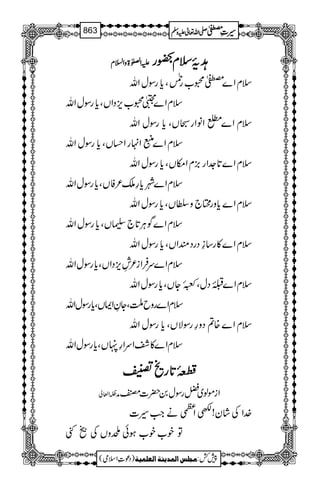 سیرتِ مصطفیٰ صلی اللہ تعالیٰ علیہ وسلم 863
ہدیۂ سلام بحضور علیہ الصلوٰۃ والسلام
سلام اے مصطفیٰ محبوبِ رحمٰں، یا رسول اللہ
سلام اے مجتبیٰ محبوبِ یزداں، یا رسول اللہ
سلام اے مطلعِ انوارِ سبحاں، یا رسول اللہ
سلام اے منبعِ انہارِ احساں، یا رسول اللہ
سلام اے تاجدارِ بزمِ امکاں، یا رسول اللہ
سلام اے شہریارِ ملکِ عرفاں، یا رسول اللہ
سلام اے یاورِ محتاج و سلطاں، یا رسول اللہ
سلام اے گوہرِ تاجِ سلیماں، یا رسول اللہ
سلام اے کارسازِ دردمنداں، یا رسول اللہ
سلام اے سرفرازِ عرشِ یزداں، یا رسول اللہ
سلام اے قبلۂ دل، کعبۂ جاں، یا رسول اللہ
سلام اے روحِ ملت، جانِ ایماں، یا رسول اللہ
سلام اے خاتمِ دورِ رسولاں، یا رسول اللہ
سلام اے کاشفِ اسرارِ پنہاں، یا رسول اللہ
قطعۂ تاریخِ تصنیف
از مولوی فضلِ رسول بن حضرت مصنف مدظلہ العالی
خدا کی شان! لکھی اعظمی نے جب سیرت
تو خوب خوب ہوئی ملحدوں کی بیخ کنی
پیش کش: مجلس المدینۃ العلمیۃ (دعوتِ اسلامی)